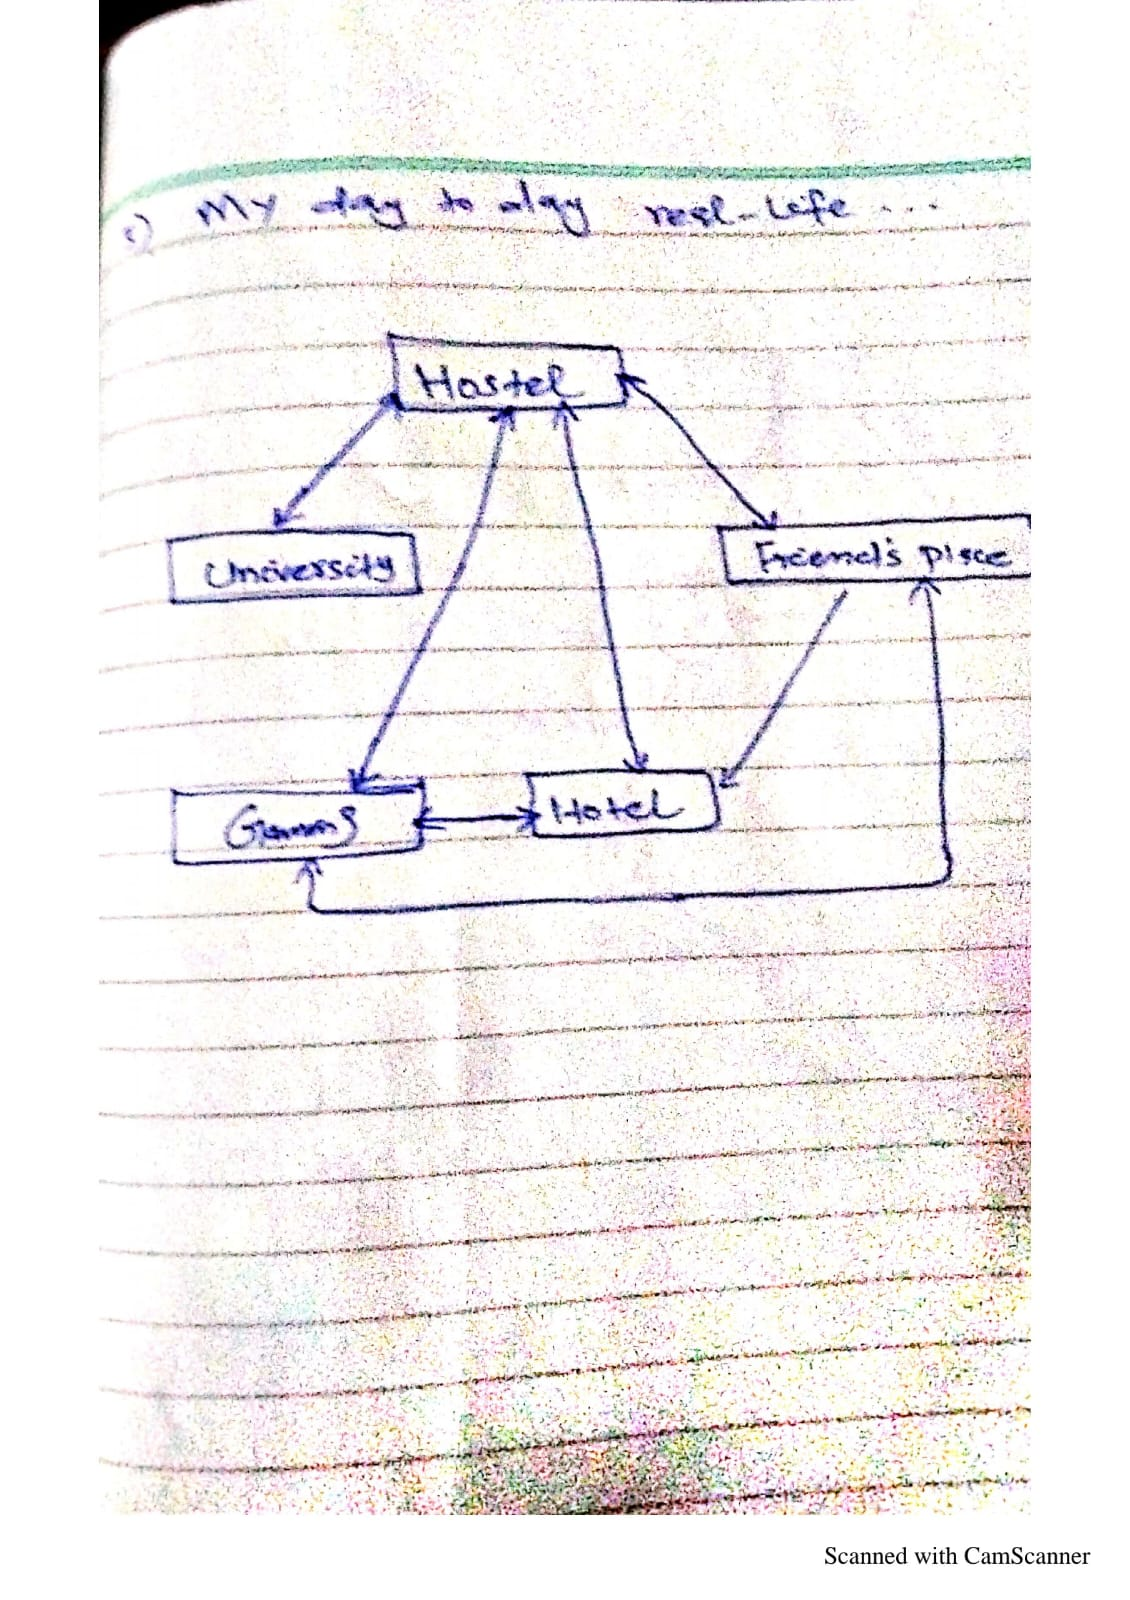 c) My day to day real-Life ...
Hostel
University
Friend's place
Hotel
Scanned with CamScanner